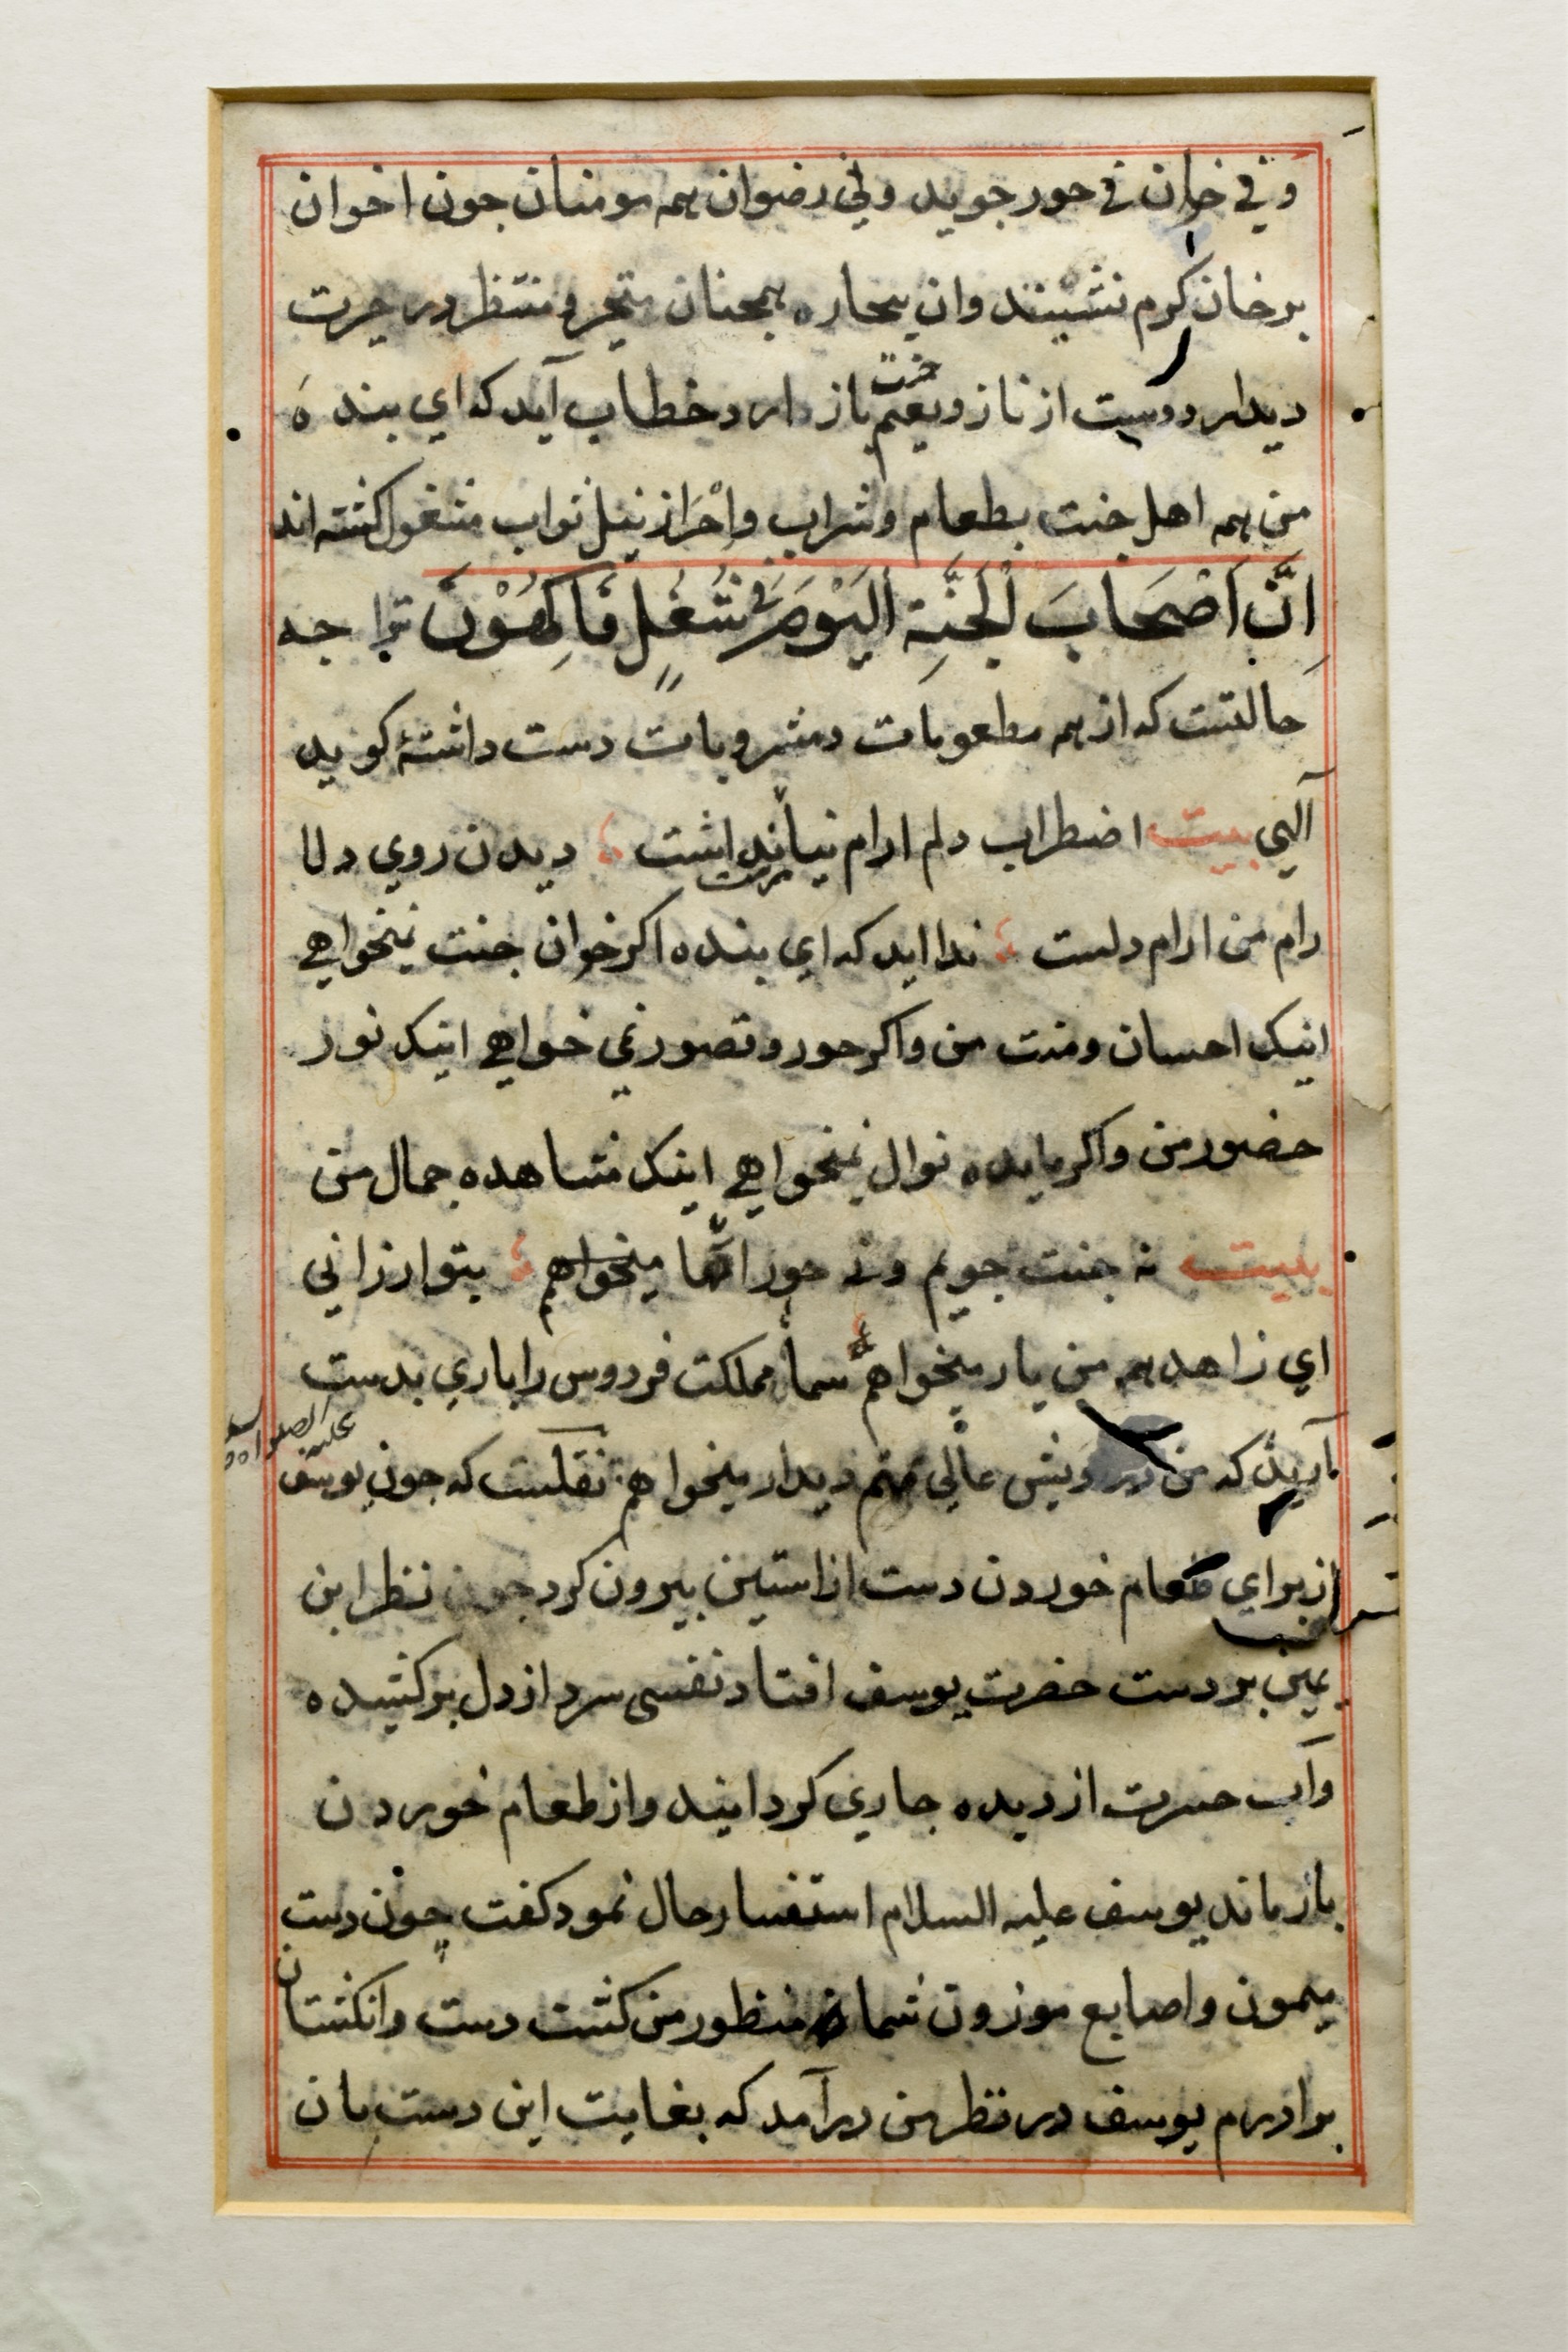 و نی خوان نی حور جوید ونی رضوان همه مومنان جون اخوان
بر خان کرم نشینند وان بیچاره همچنان متحیر و منتظر در حیرت
دیدار دوست از ناز و نعیم جنت باز دارد خطاب آید که ای بنده
من همه اهل جنت بطعام و شراب واِحْرَاز نیل ثواب مشغول کشته اند
اِنَّ اَصْحَابَ الْجَنَّةِ الْيَوْمَ فِي شُغُلٍ فَاكِهُوْنَ ترا جه
حالتست که از همه مطعومات و مشروبات دست داشتهٔ کوید
آلهی بیت اضطراب دلم ارام نیارد داشت دیدن روی دلا
رام من ارام دلست ندا اید که ای بنده اکر خوان جنت نمیخواهی
اینک احسان ومنت من واکر حور و قصور نمی خواهی اینک نور
حضور من واکر مایده نوال نمیخواهی اینک مشاهده جمال من
بیت نه جنت جویم ونه حور انها میخواهم بتو ارزانی
ای زاهد همه من یار میخواهم شما مملکت فردوس را باری بدست
آرید که من درویش عالی همتم دیدار میخواهم نقلست که جون یوسف
علیه الصلواه
از برای طعام خوردن دست از استین بیرون کرد جون نظر ابن
یمین بر دست حضرت یوسف افتاد نفسی سرد از دل برکشیده
وآب حسرت از دیده جاری کردانید و از طعام خوردن
باز ماند یوسف علیه السلام استفسار حال نمود کفت چون دست
میمون و اصابع موزون شما منظور من کشت دست وانکشتان
برادرم یوسف در نظر من درآمد که بغایت این دست بان